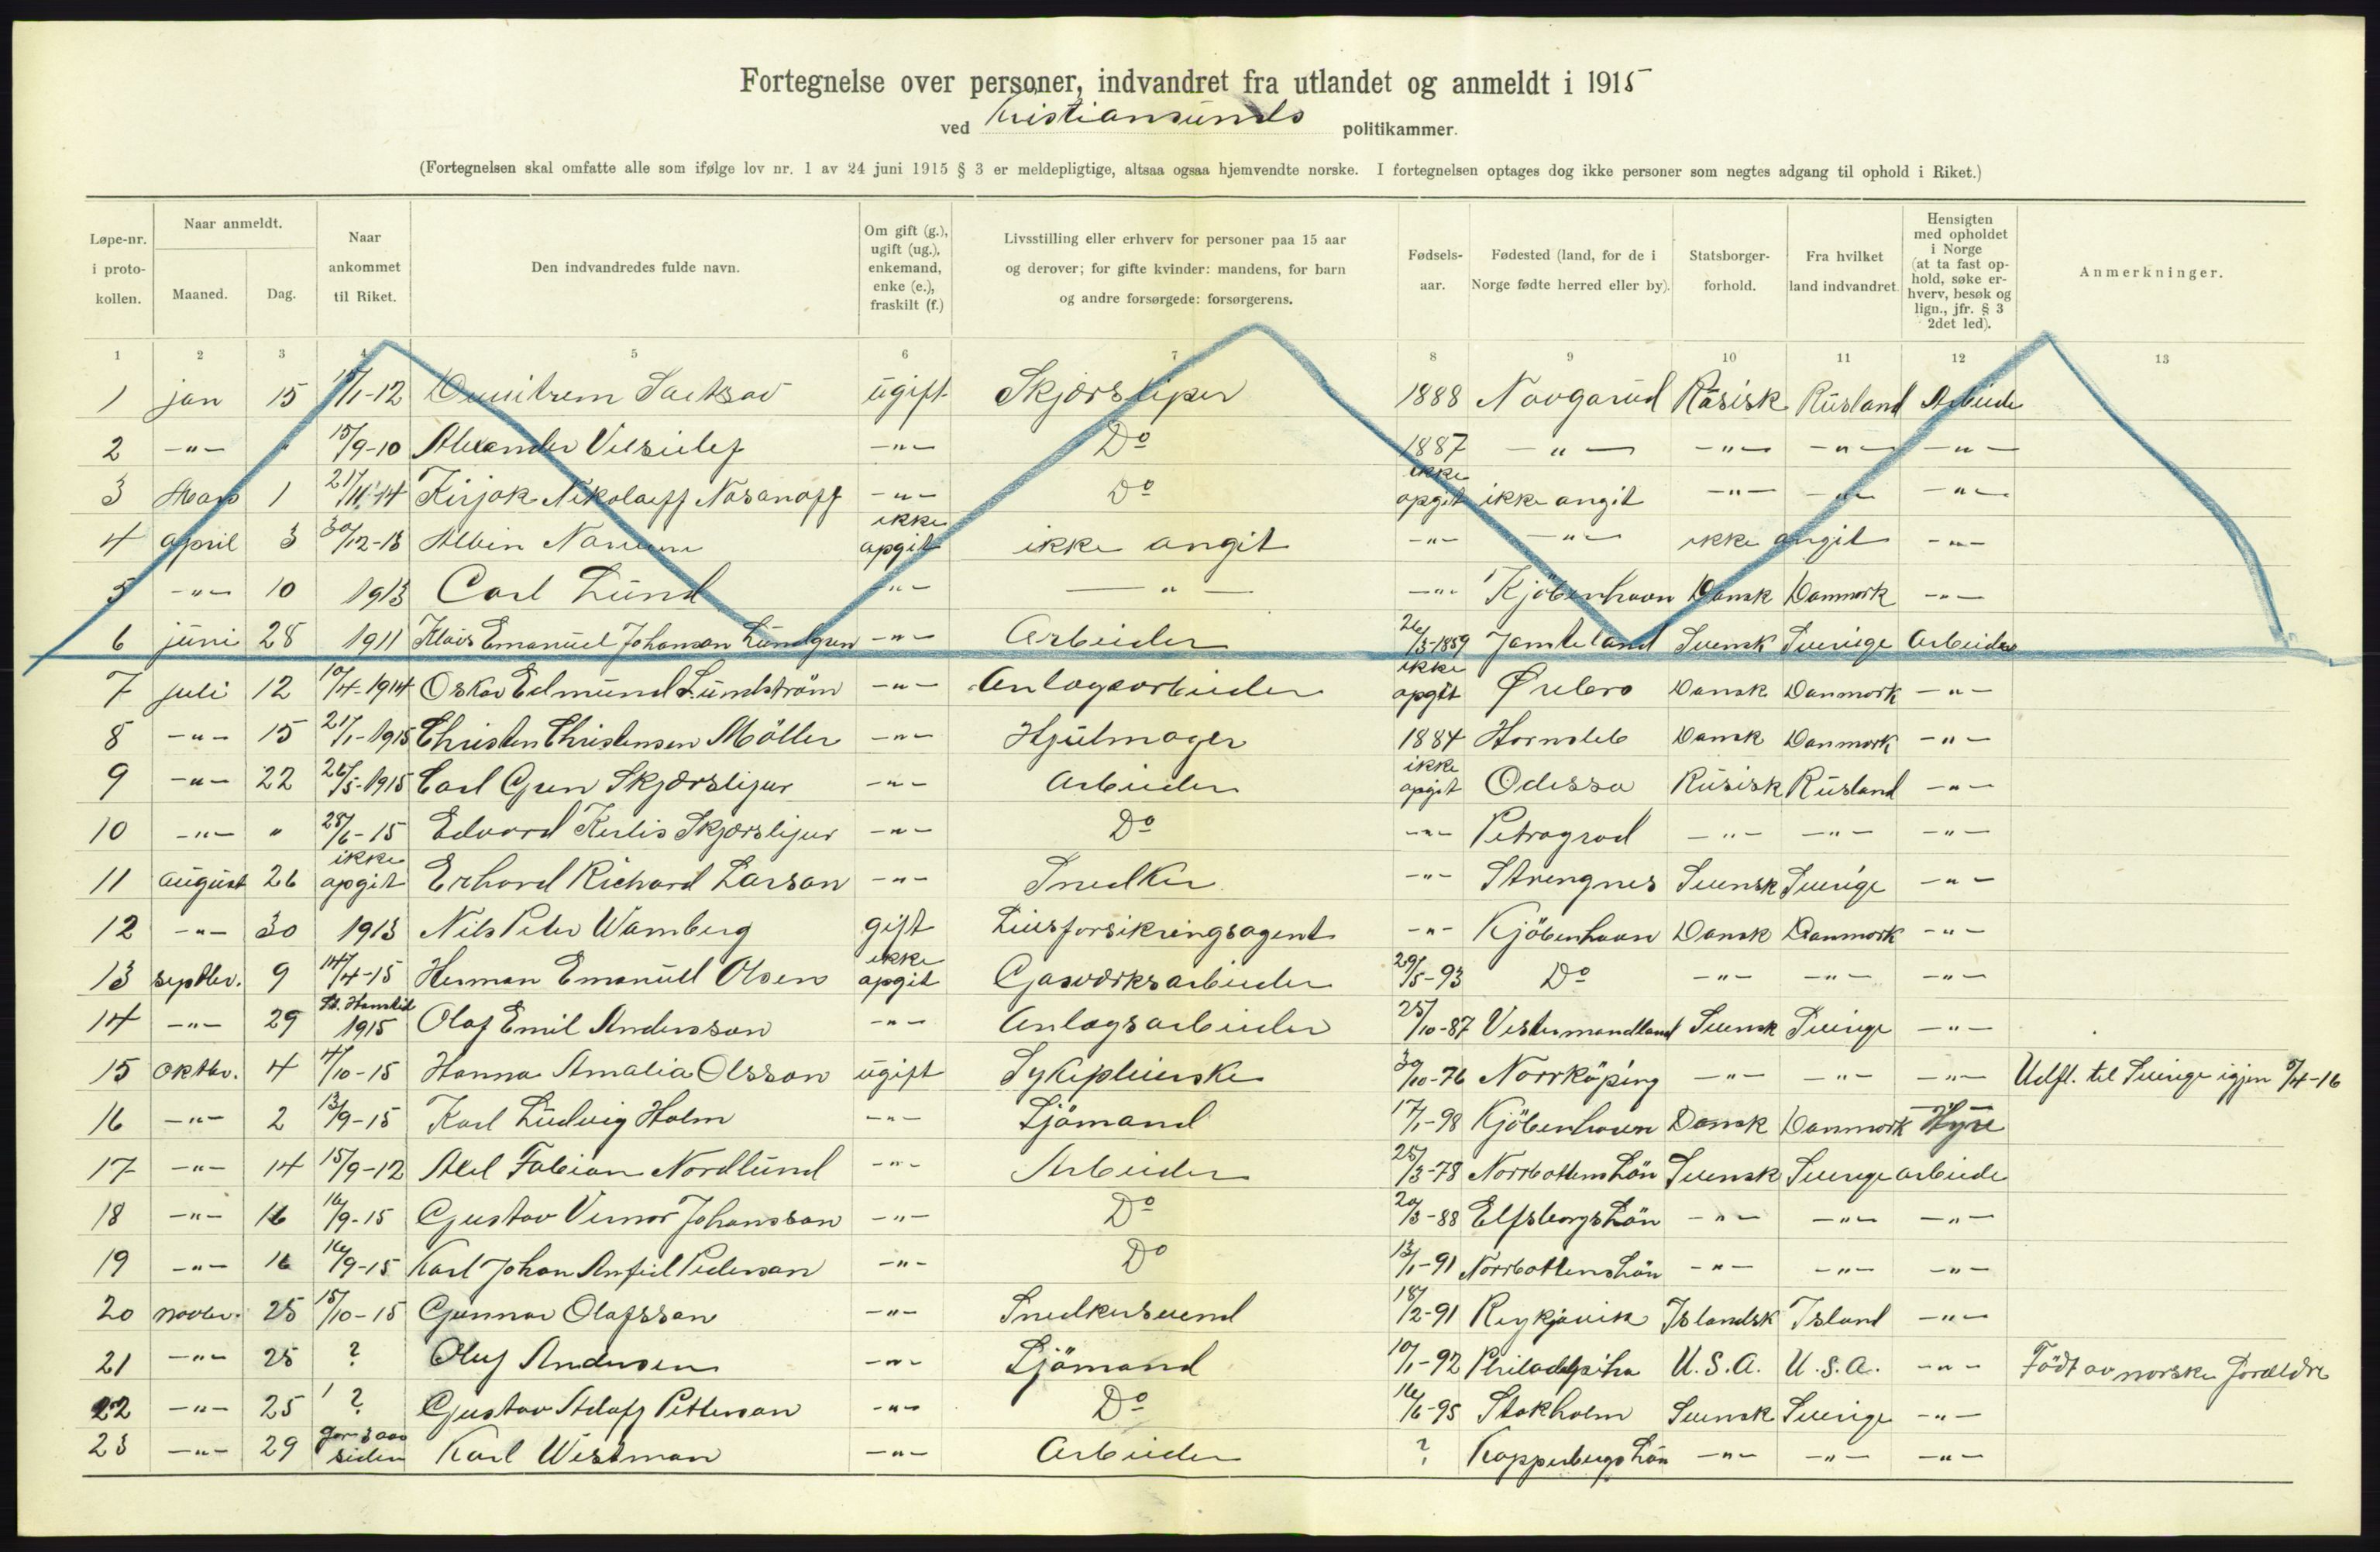 Fortegnelse over personer, indvandret fra utlandet og anmeldt i 1915
ved Kristiansunds politikammer.
(Fortegnelsen skal omfatte alle som ifølge lov nr. 1 av 24 juni 1915 § 3 er meldepligtige, altsaa ogsaa hjemvendte norske. I fortegnelsen optages dog ikke personer som negtes adgang til ophold i Riket.)
Løpe-nr. i proto-kollen. Naar anmeldt. Maaned. Dag. Naar ankommet til Riket. Den indvandredes fulde navn. Om gift (g.), ugift (ug.), enkemand, enke (e.), fraskilt (f.) Livsstilling eller erhverv for personer paa 15 aar og derover; for gifte kvinder: mandens, for barn og andre forsørgede: forsørgerens. Fødsels-aar. Fødested (land, for de i Norge fødte herred eller by). Statsborger-forhold. Fra hvilket land indvandret. Hensigten med opholdet i Norge (at ta fast op-hold, søke er-hverv, besøk og lign., jfr. § 3 2det led). Anmerkninger.
1 2 3 4 5 6 7 8 9 10 11 12 13
1 jan 15 15/1-12 ugift Skjærsliper 1888 Novgarud Rusisk Rusland Arbeide
2 -"- " 15/9-10 Alexander -"- Do 1887 -"- -"- -"- -"-
3 Mars 1 21/11-14 Kirjak Nikolaeff Nasanoff -"- Do ikke opgit ikke angit -"- -"- -"-
4 april 3 30/12-13 Albin ikke opgit ikke angit -"- -"- ikke angit -"-
5 -"- 10 1913 Carl Lund -"- -"- -"- Kjöbenhavn Dansk Danmark -"-
6 juni 28 1911 Emanuel Johanson Lundgren -"- Arbeider 26/3-1859 Jamteland Svensk Sverige Arbeide
7 juli 12 10/4-1914 Oskar Edmund Lundström -"- Anlægsarbeider ikke opgit Ørebro Dansk Danmark -"-
8 -"- 15 21/1-1915 Christen Christensen Möller -"- Hjulmager 1884 Hornsleb Dansk Danmark -"-
9 -"- 22 26/5-1915 Carl Gren Skjærsliper -"- Arbeider ikke opgit Odessa Rusisk Rusland -"-
10 -"- " 28/6-15 Edvard Skjærsliper -"- Do -"- Petrograd -"- -"- -"-
11 august 26 ikke opgit Erhard Richard Larson -"- Snedker -"- Strengnes Svensk Sverige -"-
12 -"- 30 1913 Nils Peter Wamberg gift Livsforsikringsagent -"- Kjöbenhavn Dansk Danmark -"-
13 septbr. 9 14/4-15 Herman Emanuel Olsen ikke opgit Gasværksarbeider 29/5-93 Do -"- -"- -"-
14 -"- 29 1915 Olaf Emil Andersson -"- Anlægsarbeider 25/10-87 Vestermandland Svensk Sverige -"-
15 oktbr. 4 4/10-15 Hanna Amalia Olsson ugift Sykepleierske 30/10-76 Norrköping -"- -"- -"- Udfl. til Sverige igjen 5/4-16
16 -"- 2 13/9-15 Karl Ludvig Holm -"- Sjömand 17/1-98 Kjöbenhavn Dansk Danmark Hyre
17 -"- 14 15/9-12 Axel Fabian Nordlund -"- Arbeider 25/3-78 Norrbottens Län Svensk Sverige arbeide
18 -"- 16 16/9-15 Gustav Verner Johansson -"- Do 20/3-88 Elfsborgs Län -"- -"- -"-
19 -"- 16 16/9-15 Karl Johan Pederson -"- Do 13/1-91 Norrbottens Län -"- -"- -"-
20 novbr. 25 15/10-15 Gunnar Olafsson -"- Snedkersvend 18/2-91 Reykjavik Islandsk Island -"-
21 -"- 25 ? Oluf Andersen -"- Sjömand 10/1-92 Philadelpiha U.S.A. U.S.A. -"- Födt av norske forældre
22 -"- 25 ? Gustav Adolf Petterson -"- Do 16/6-95 Stokholm Svensk Sverige -"-
23 -"- 29 for 3 aar siden Karl Westman -"- Arbeider ? Kopperbergs Län -"- -"- -"-